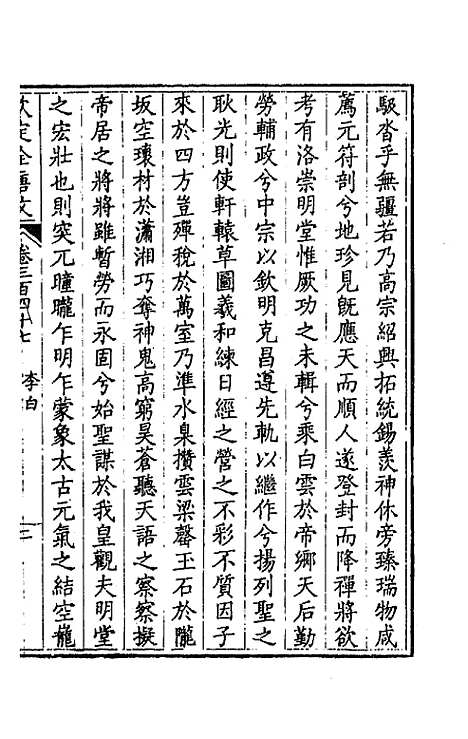 駁沓乎無疆若乃高宗紹興拓統錫羨神休旁臻瑞物咸
薦元符剖兮地珍見既應天而順人遂登封而降禪將欲
考有洛崇明堂惟厥功之未輯兮乘白雲於帝鄉天后勤
勞輔政兮中宗以欽明克昌遵先軌以繼作兮揚列聖之
耿光則使軒轅草圖羲和練日經之營之不彩不質因子
來於四方豈殫稅於萬室乃準水臬攢雲梁罄玉石於隴
坂空瓌材於瀟湘巧奪神鬼高窮昊蒼聽天語之察察擬
帝居之將將雖暫勞而永固兮始聖謀於我皇觀夫明堂
之宏壯也則突兀瞳曨乍明乍蒙象太古元氣之結空巃
欽定全唐文 卷三百四十七 李白 二